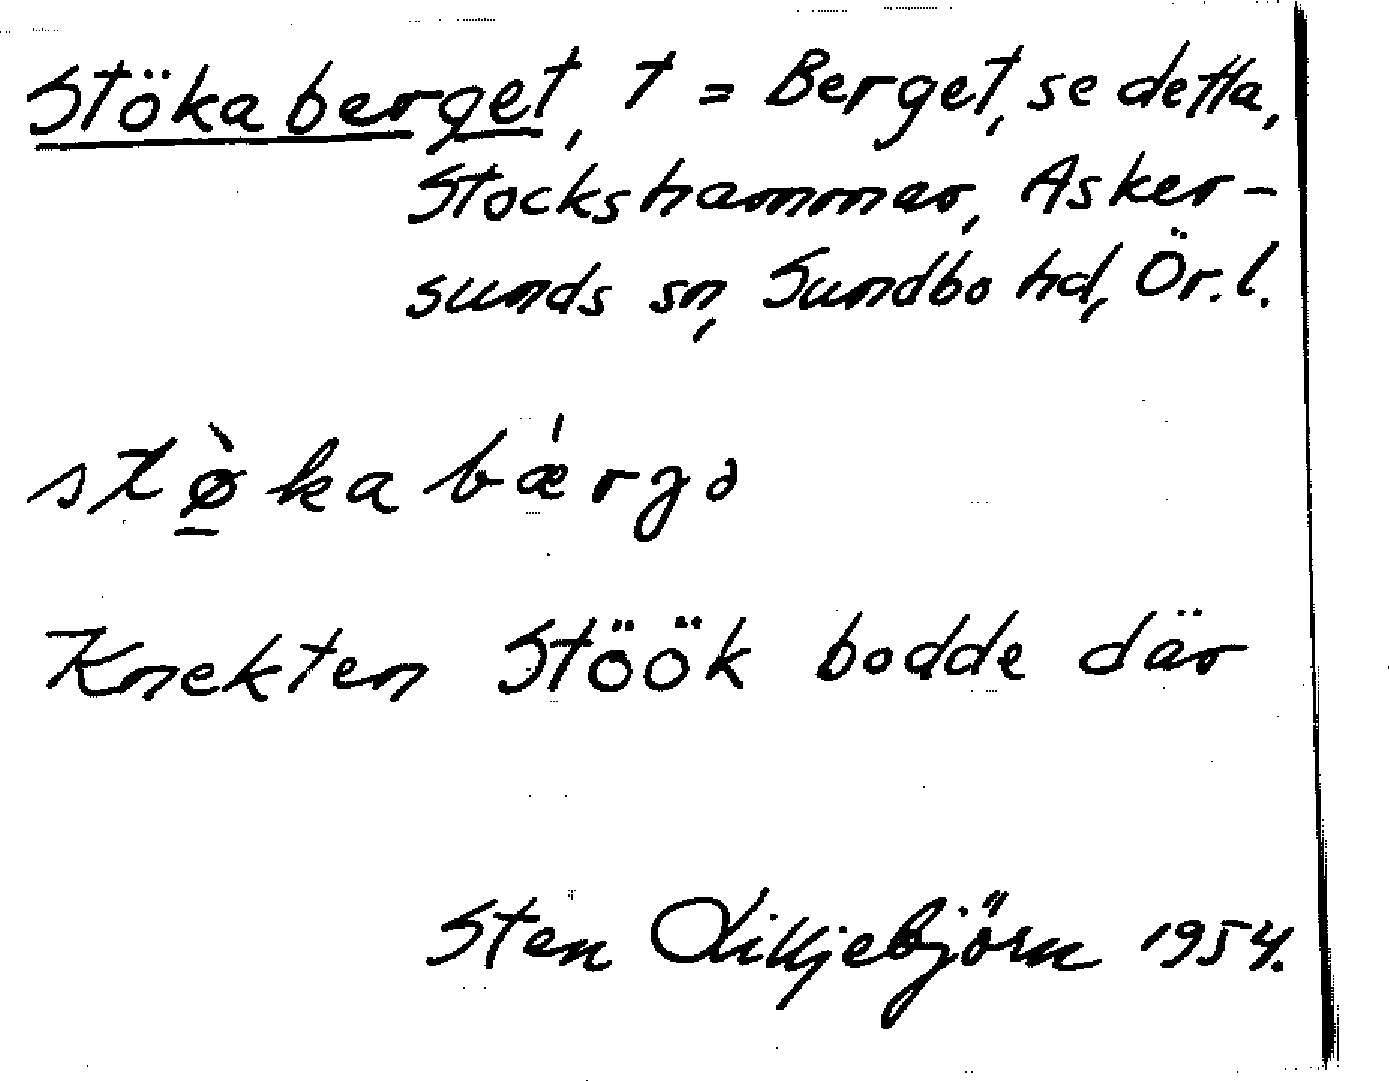 Stökaberget, T = Berget, se detta,
Stockshammar, Asker-
sunds sn, Sundbo hd, Ör. l.
stø̲̀kabǽrgə
Knekten Stöök bodde där
Sten Lilljebjörn 1954.